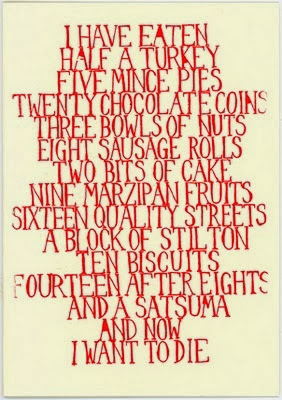 I HAVE EATEN
HALF A TURKEY
FIVE MINCE PIES
TWENTY CHOCOLATE COINS
THREE BOWLS OF NUTS
EIGHT SAUSAGE ROLLS
TWO BITS OF CAKE
NINE MARZIPAN FRUITS
SIXTEEN QUALITY STREETS
A BLOCK OF STILTON
TEN BISCUITS
FOURTEEN AFTER EIGHTS
AND A SATSUMA
AND NOW
I WANT TO DIE